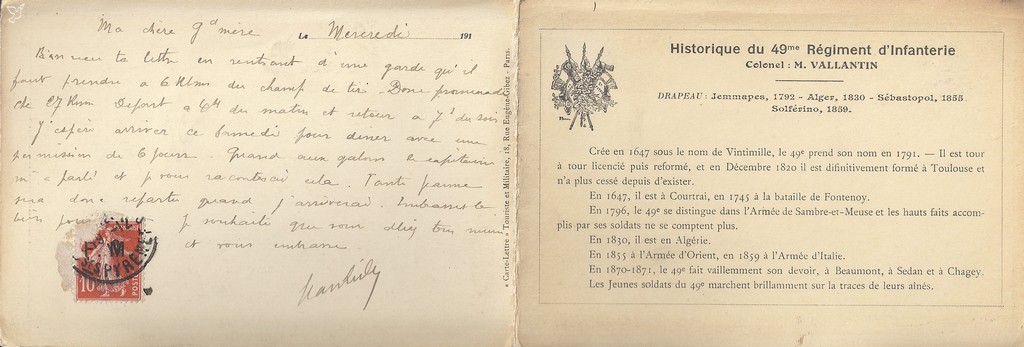 Ma chère Gd mère
Le Mercredi 191
Bien reçu ta lettre en rentrant d'une garde qu'il
faut prendre a 6 Klms du champ de tir. Bonne promenade
de 27 Kum Départ a 6h du matin et retour a 7h du soir
J'espère arriver ce Samedi pour diner avec une
permission de 6 jours. Quand aux galons le capitaine
m'a parlé et je vous raconterai cela. Tante
sera donc repartie quand j'arriverai. Embrasses le
bien pour je souhaite que vous alliez tous mieux
et vous embrasse
10
POSTES
PYRENEES
« Carte-Lettre » Touriste et Militaire, 18, Rue Eugène-Gibez - Paris.
Historique du 49me Régiment d'Infanterie
Colonel : M. VALLANTIN
DRAPEAU : Jemmapes, 1792 - Alger, 1830 - Sébastopol, 1855
Solférino, 1859.
Crée en 1647 sous le nom de Vintimille, le 49e prend son nom en 1791. — Il est tour
à tour licencié puis reformé, et en Décembre 1820 il est difinitivement formé à Toulouse et
n'a plus cessé depuis d'exister.
En 1647, il est à Courtrai, en 1745 à la bataille de Fontenoy.
En 1796, le 49e se distingue dans l'Armée de Sambre-et-Meuse et les hauts faits accom-
plis par ses soldats ne se comptent plus.
En 1830, il est en Algérie.
En 1855 à l'Armée d'Orient, en 1859 à l'Armée d'Italie.
En 1870-1871, le 49e fait vaillemment son devoir, à Beaumont, à Sedan et à Chagey.
Les Jeunes soldats du 49e marchent brillamment sur la traces de leurs aînés.